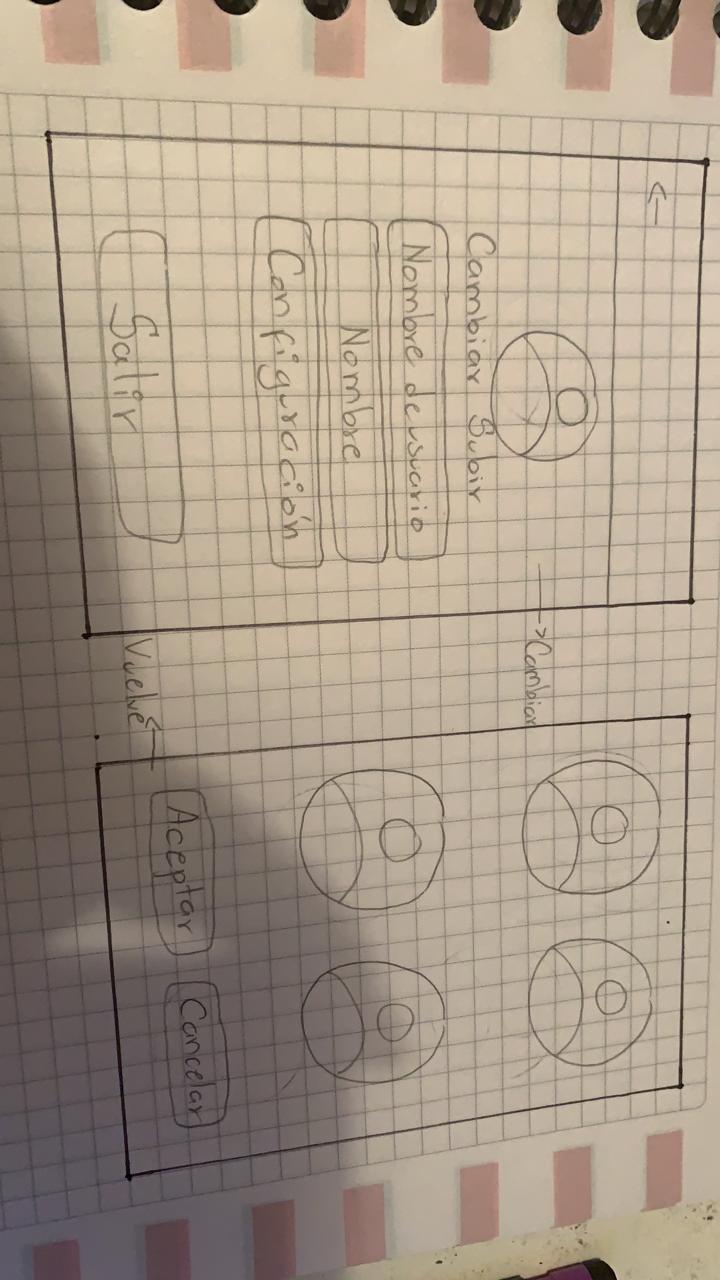 ←
Cambiar Subir
Nombre de usuario
Nombre
Configuración
Salir
→ Cambiar
Vuelve ←
Aceptar
Cancelar